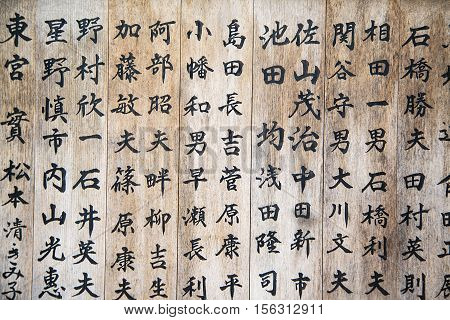 田正
石橋勝夫 田村英則
相田一男 石橋利夫
関谷守男 大川文夫
佐山茂治 中田新市
池田 均 浅田隆司
島田長吉 菅原康平
小幡和男 早瀬長利
阿部昭夫 畔柳吉生
加藤敏夫 篠原康夫
野村欣一 石井英夫
星野慎市 内山光惠
東宮 實 松本 清・きみ子